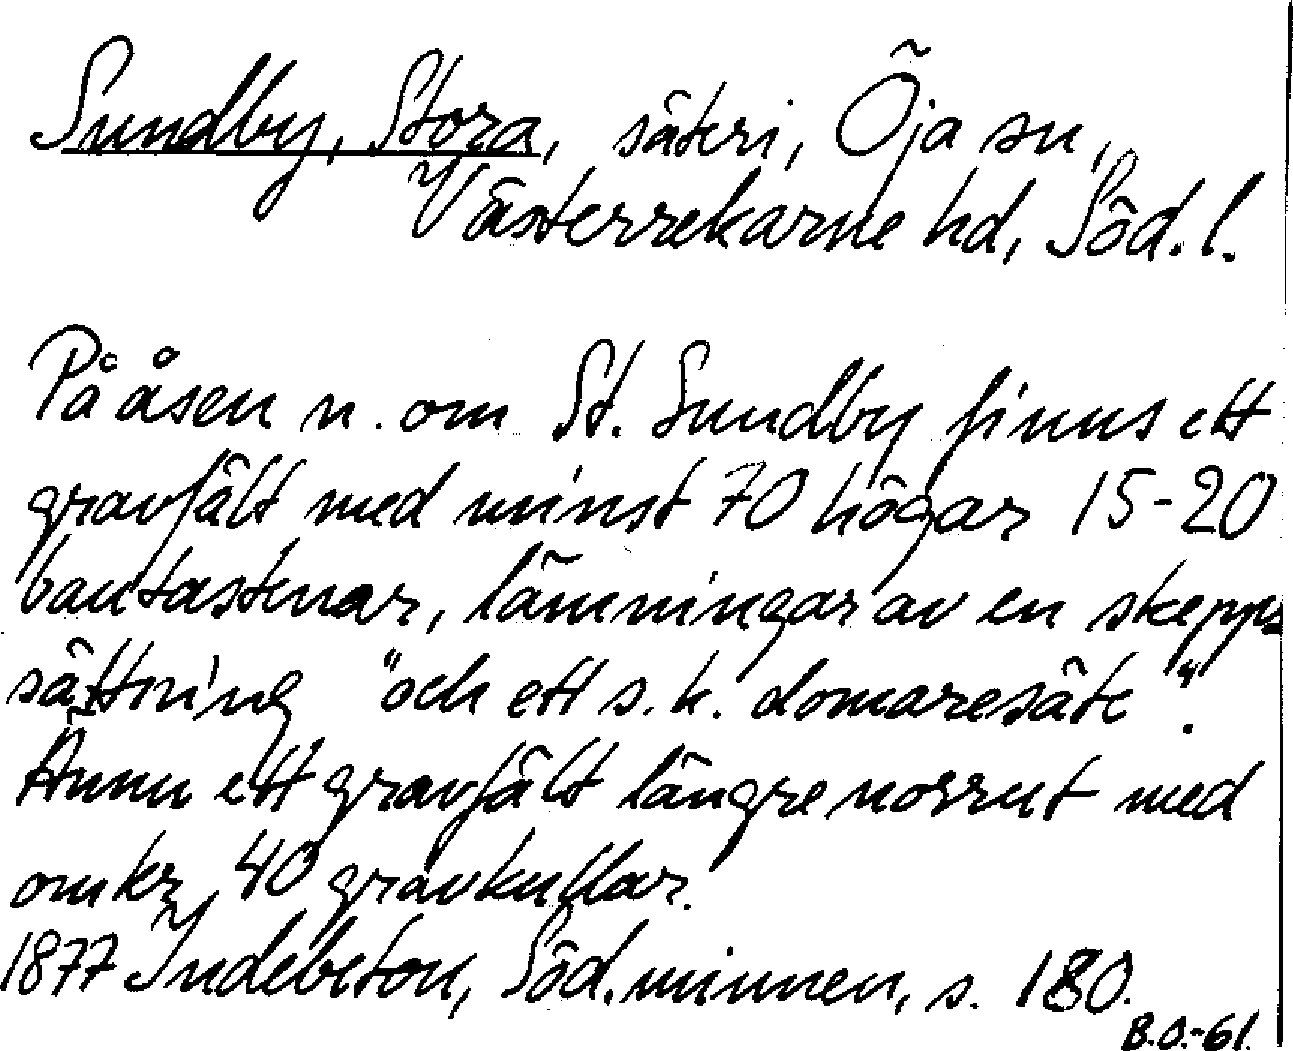 Sundby, Stora, säteri, Öja sn,
Västerrekarne hd, Söd. l.
På åsen n. om St. Sundby finns ett
gravfält med minst 70 högar 15-20
bautastenar, lämningar av en skepps
sättning "och ett s.k. domaresäte".
Ännu ett gravfält längre norrut med
omkr. 40 gravkullar.
1877 Indebetou, Söd. minnen, s. 180.
B.O.-61.